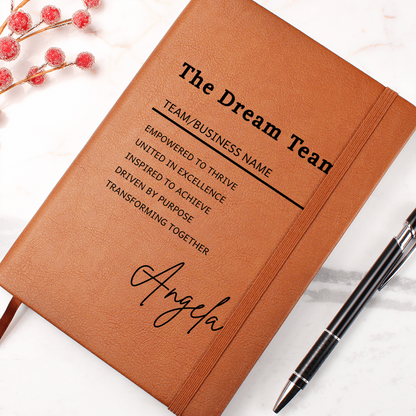 The Dream Tean
TEAM/BUSINESS NAME
EMPOWERED TO THRIVE
UNITED IN EXCELLENCE
INSPIRED TO ACHIEVE
DRIVEN BY PURPOSE
TRANSFORMING TOGETHER
Angela